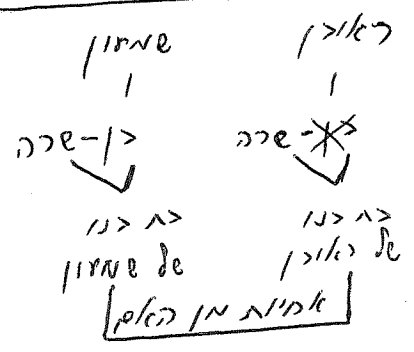 ראובן שמעון
בן-שרה בן-שרה
בת בנו בת בנו
של ראובן של שמעון
אחיות מן האם